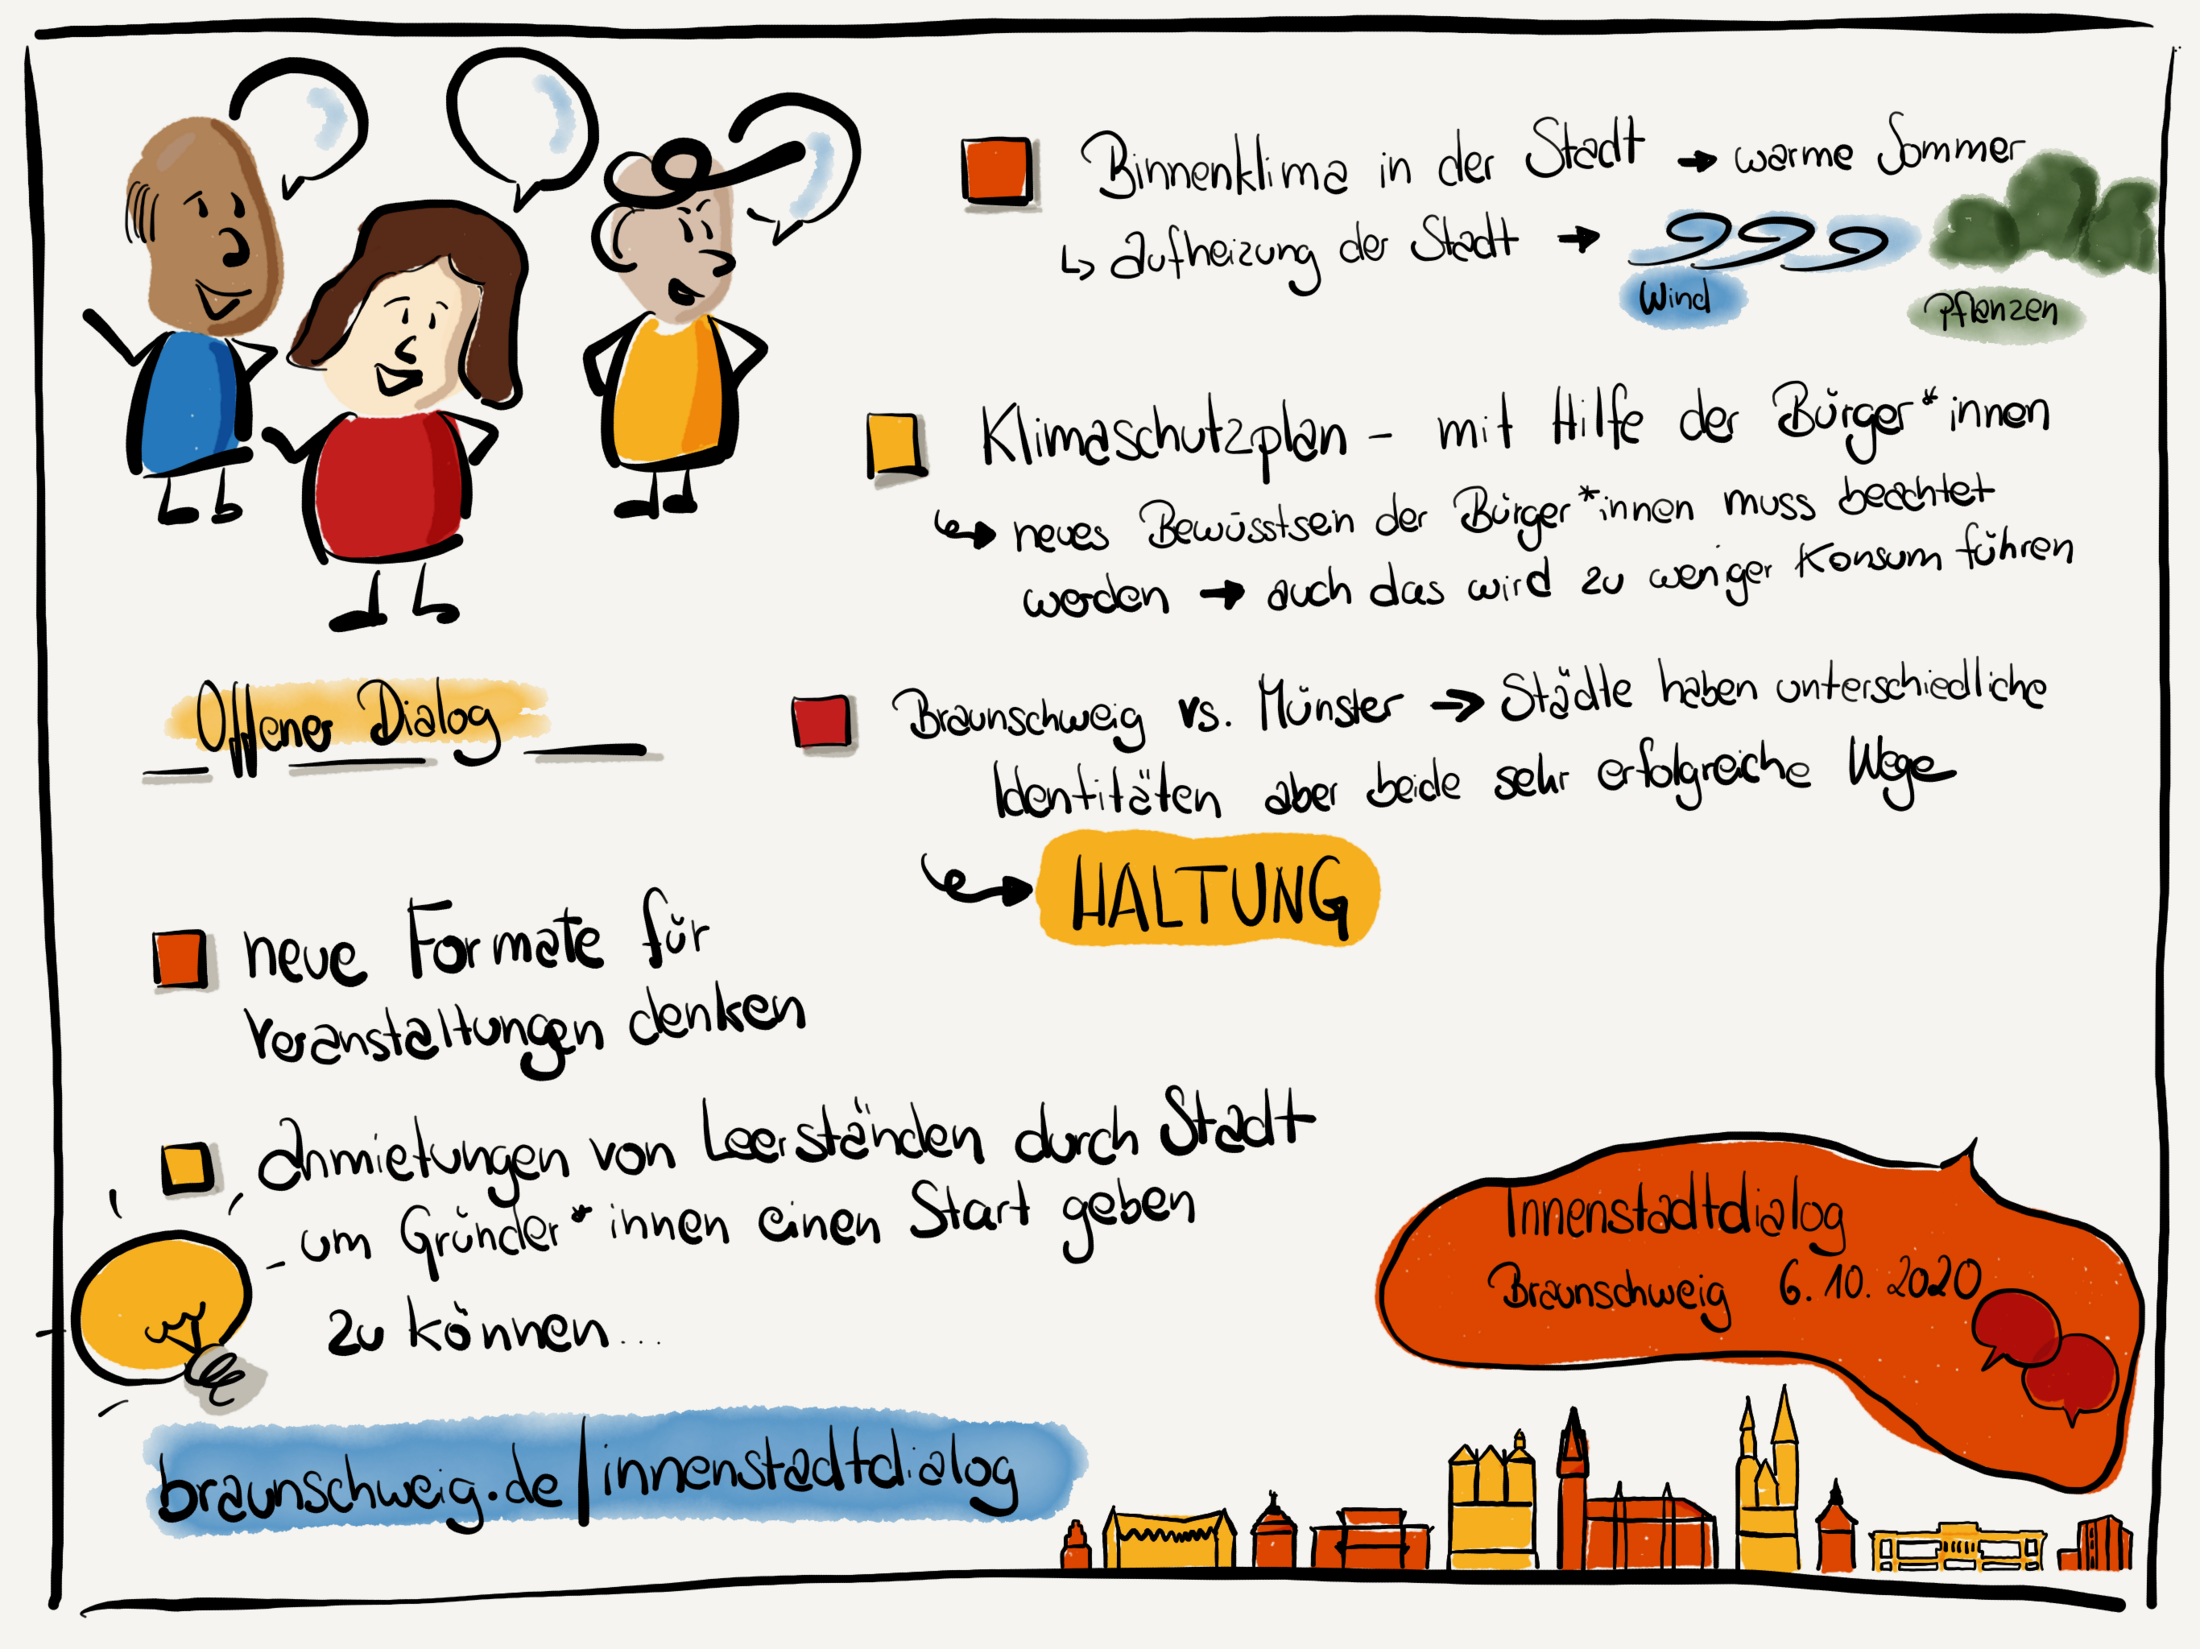 Binnenklima in der Stadt → warme Sommer
↳ Aufheizung der Stadt →
Wind
Pflanzen
Klimaschutzplan - mit Hilfe der Bürger*innen
↳ neues Bewusstsein der Bürger*innen muss beachtet
werden → auch das wird zu weniger Konsum führen
Offener Dialog
Braunschweig vs. Münster → Städte haben unterschiedliche
Identitäten aber beide sehr erfolgreiche Wege
↳ HALTUNG
neue Formate für
Veranstaltungen denken
Anmietungen von Leerständen durch Stadt
um Gründer*innen einen Start geben
zu können...
braunschweig.de/innenstadtdialog
Innenstadtdialog
Braunschweig 6.10.2020